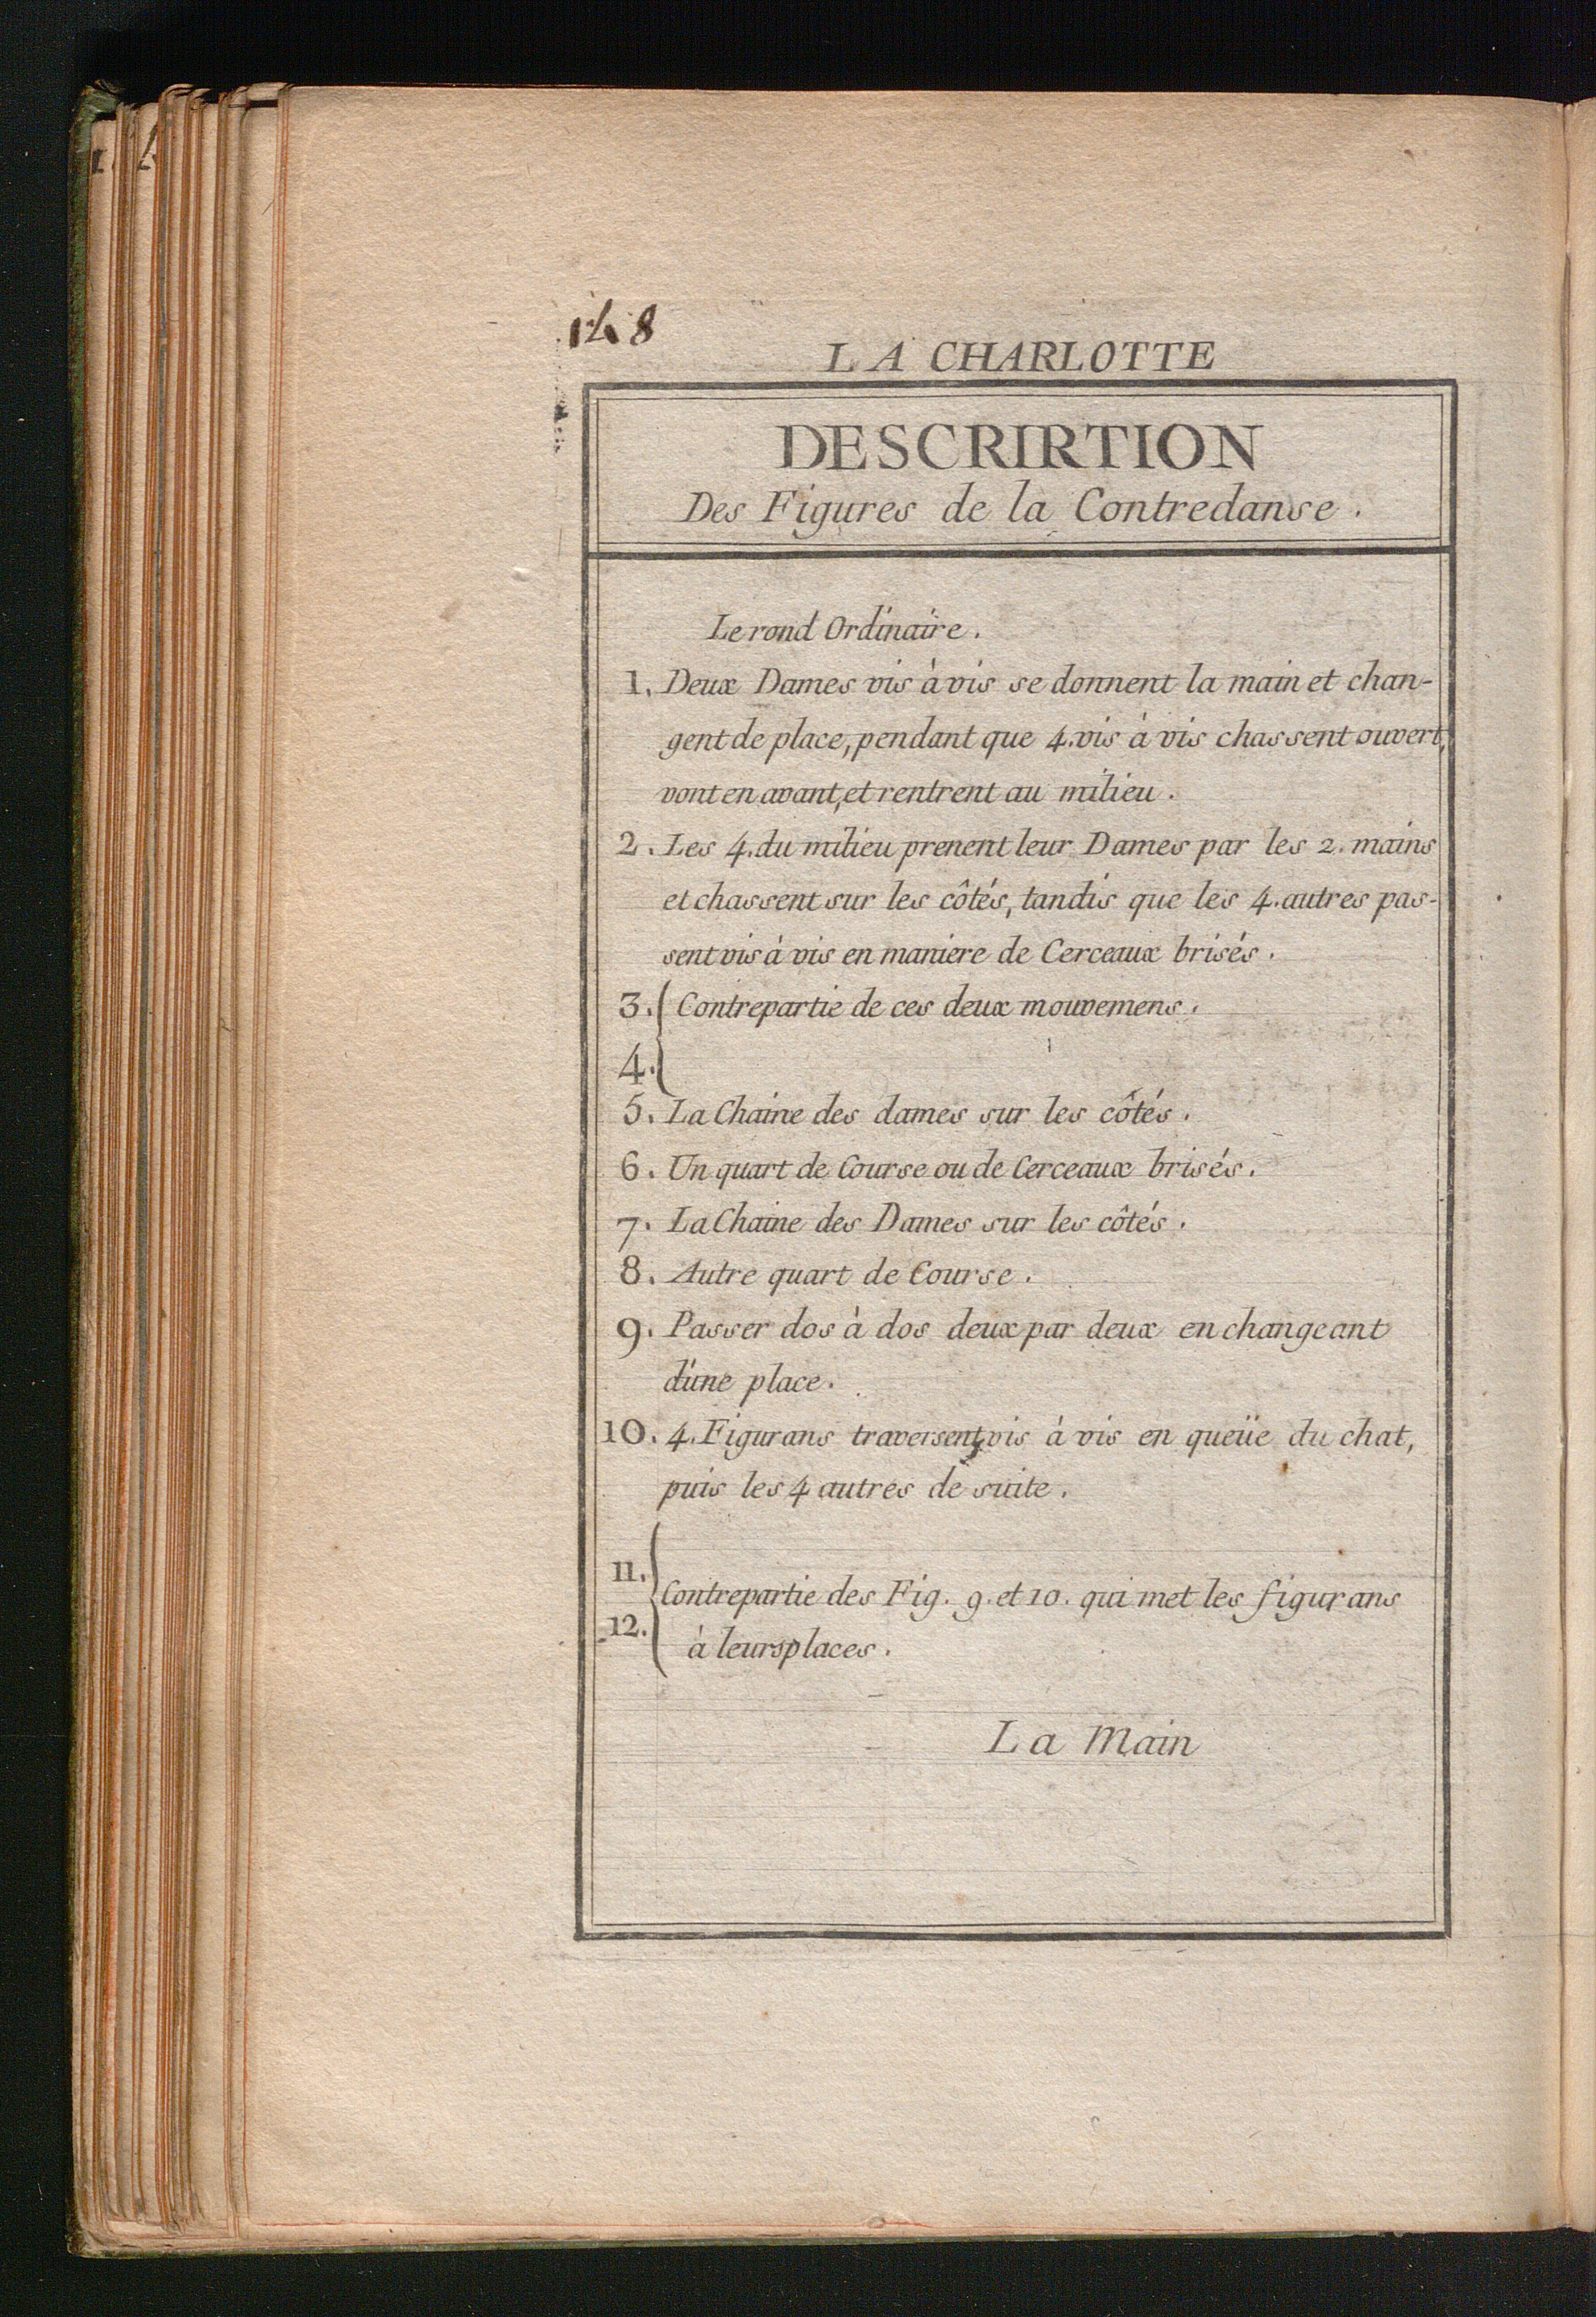 148
LA CHARLOTTE
DESCRIRTION
Des Figures de la Contredanse.
Le rond Ordinaire.
1. Deux Dames vis à vis se donnent la main et chan-
gent de place, pendant que 4. vis à vis chassent ouvert,
vont en avant, et rentrent au milieu.
2. Les 4. du milieu prenent leur Dames par les 2. mains
et chassent sur les côtés, tandis que les 4. autres pas-
sent vis à vis en maniere de Cerceaux brisés.
3. { Contrepartie de ces deux mouvemens.
4. {
5. La Chaine des dames sur les côtés.
6. Un quart de Course ou de Cerceaux brisés.
7. La Chaine des Dames sur les côtés.
8. Autre quart de Course.
9. Passer dos à dos deux par deux en changeant
d'une place.
10. 4. Figurans traversent vis à vis en queüe du chat,
puis les 4 autres de suite.
11. {
Contrepartie des Fig. 9. et 10. qui met les figurans
12.
à leurs places.
La Main